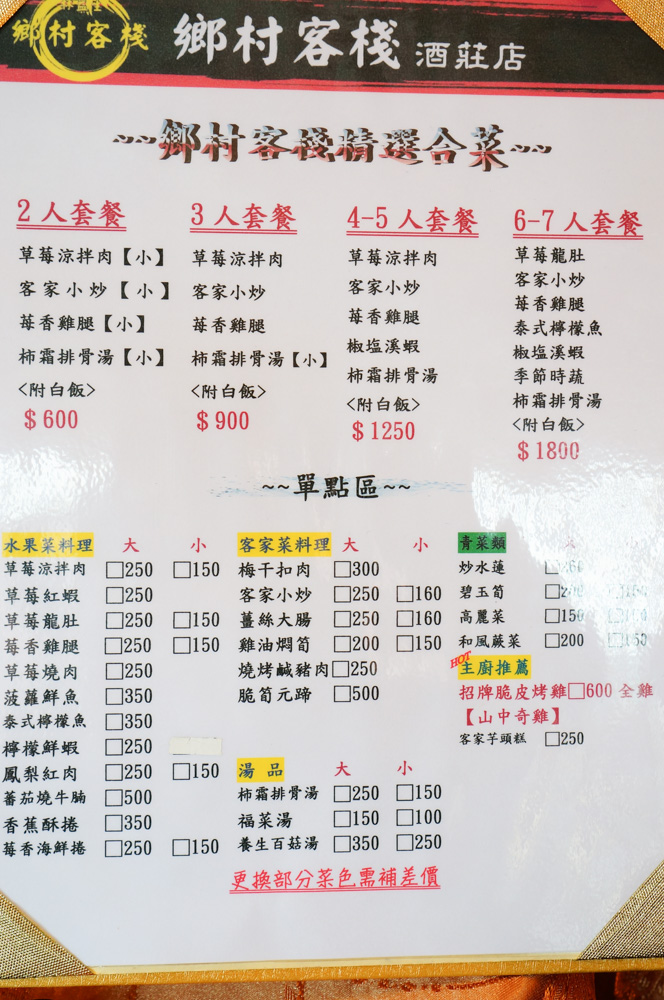 鄉村客棧
鄉村客棧 酒莊店
~~鄉村客棧精選合菜~~
2人套餐
草莓涼拌肉【小】
客家小炒【小】
莓香雞腿【小】
柿霜排骨湯【小】
<附白飯>
$600
3人套餐
草莓涼拌肉
客家小炒
莓香雞腿
柿霜排骨湯【小】
<附白飯>
$900
4-5人套餐
草莓涼拌肉
客家小炒
莓香雞腿
椒塩溪蝦
柿霜排骨湯
<附白飯>
$1250
6-7人套餐
草莓龍肚
客家小炒
莓香雞腿
泰式檸檬魚
椒塩溪蝦
季節時蔬
柿霜排骨湯
<附白飯>
$1800
~~單點區~~
水果菜料理 大 小
草莓涼拌肉 □250 □150
草莓紅蝦 □250
草莓龍肚 □250 □150
莓香雞腿 □250 □150
草莓燒肉 □250
菠蘿鮮魚 □350
泰式檸檬魚 □350
檸檬鮮蝦 □250
鳳梨紅肉 □250 □150
蕃茄燒牛腩 □500
香蕉酥捲 □350
莓香海鮮捲 □250 □150
客家菜料理 大 小
梅干扣肉 □300
客家小炒 □250 □160
薑絲大腸 □250 □160
雞油燜筍 □200 □150
燒烤鹹豬肉□250
脆筍元蹄 □500
湯品 大 小
柿霜排骨湯 □250 □150
福菜湯 □150 □100
養生百菇湯 □350 □250
青菜類 大 小
炒水蓮
碧玉筍
高麗菜 □150
和風蕨菜 □200
HOT
主廚推薦
招牌脆皮烤雞□600 全雞
【山中奇雞】
客家芋頭糕 □250
更換部分菜色需補差價